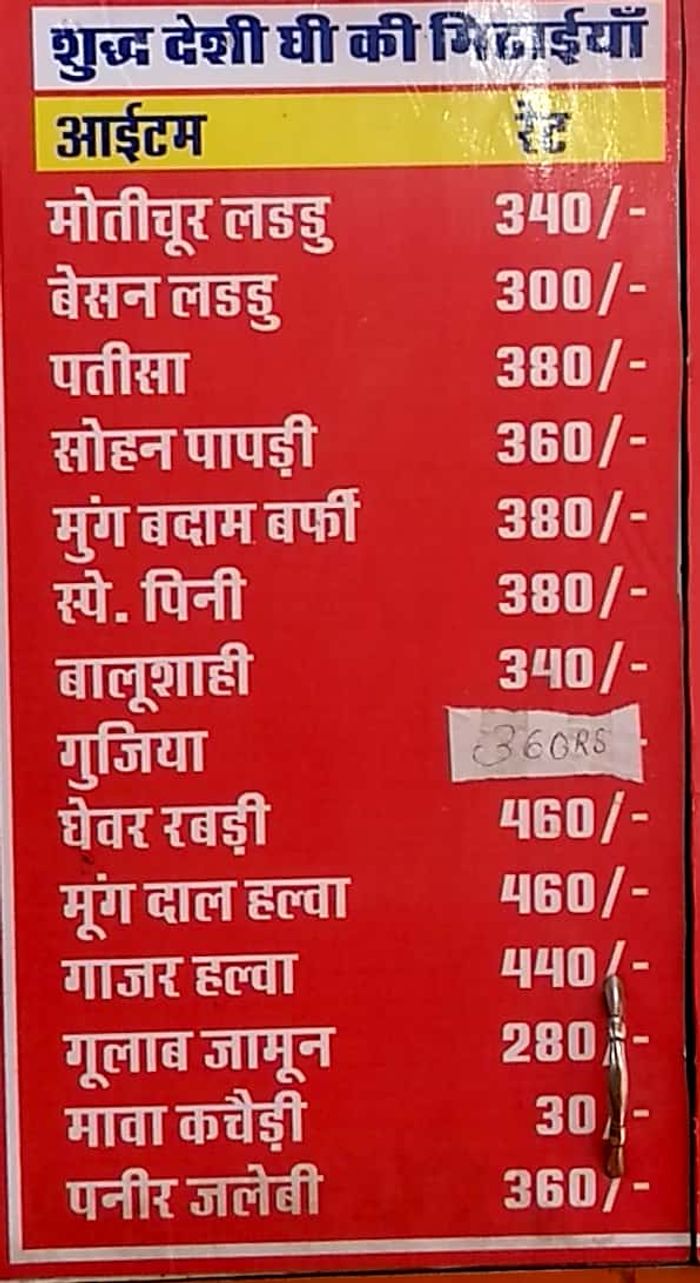 शुद्ध देशी घी की मिठाईयाँ
आईटम रेट
मोतीचूर लडडु 340/-
बेसन लडडु 300/-
पतीसा 380/-
सोहन पापड़ी 360/-
मुंग बदाम बर्फी 380/-
स्पे. पिनी 380/-
बालूशाही 340/-
गुजिया 360RS
घेवर रबड़ी 460/-
मूंग दाल हल्वा 460/-
गाजर हल्वा 440/-
गूलाब जामून 280/-
मावा कचैड़ी 30/-
पनीर जलेबी 360/-